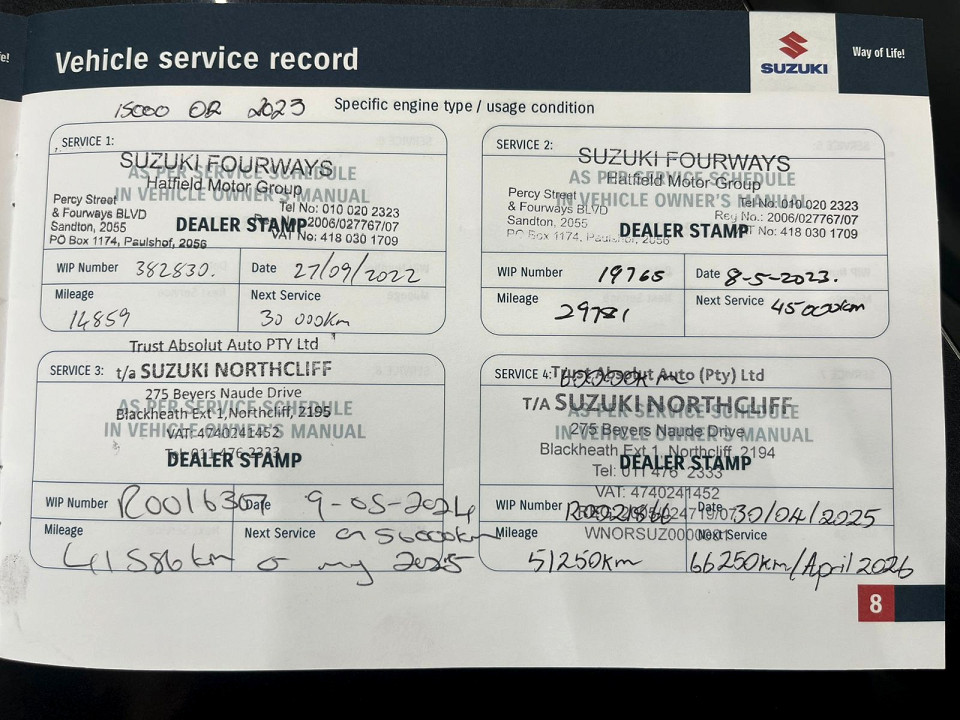 e!
Vehicle service record
SUZUKI
Way of Life!
15000 OR 2023
Specific engine type / usage condition
SERVICE 1:
SUZUKI FOURWAYS
AS PER SERVICE SCHEDULE
Hatfield Motor Group
IN VEHICLE OWNER'S MANUAL
Percy Street
& Fourways BLVD
Sandton, 2055
PO Box 1174, Paulshof, 2056
Tel No: 010 020 2323
Reg No.: 2006/027767/07
VAT No: 418 030 1709
DEALER STAMP
WIP Number 382830.
Date 27/09/2022
Mileage
14859
Next Service
30 000km
SERVICE 2:
SUZUKI FOURWAYS
AS PER SERVICE SCHEDULE
Hatfield Motor Group
IN VEHICLE OWNER'S MANUAL
Percy Street
& Fourways BLVD
Sandton, 2055
PO Box 1174, Paulshof, 2056
Tel No: 010 020 2323
Reg No.: 2006/027767/07
VAT No: 418 030 1709
DEALER STAMP
WIP Number 19765
Date 8-5-2023.
Mileage
29781
Next Service 45000km
Trust Absolut Auto PTY Ltd
SERVICE 3: t/a SUZUKI NORTHCLIFF
275 Beyers Naude Drive
AS PER SERVICE SCHEDULE
Blackheath Ext 1, Northcliff, 2195
IN VEHICLE OWNER'S MANUAL
VAT: 4740241452
Tel: 011 476 2333
DEALER STAMP
WIP Number R0016307
Date 9-05-2024
Mileage
41586km
Next Service
56000km
2025
SERVICE 4: Trust Absolut Auto (Pty) Ltd
60000km
T/A SUZUKI NORTHCLIFF
AS PER SERVICE SCHEDULE
275 Beyers Naude Drive
IN VEHICLE OWNER'S MANUAL
Blackheath Ext 1, Northcliff, 2194
DEALER STAMP
Tel: 011 476 2333
VAT: 4740241452
WIP Number R0021866
Date 30/04/2025
Mileage
51250km
Next Service
66250km/April 2026
8